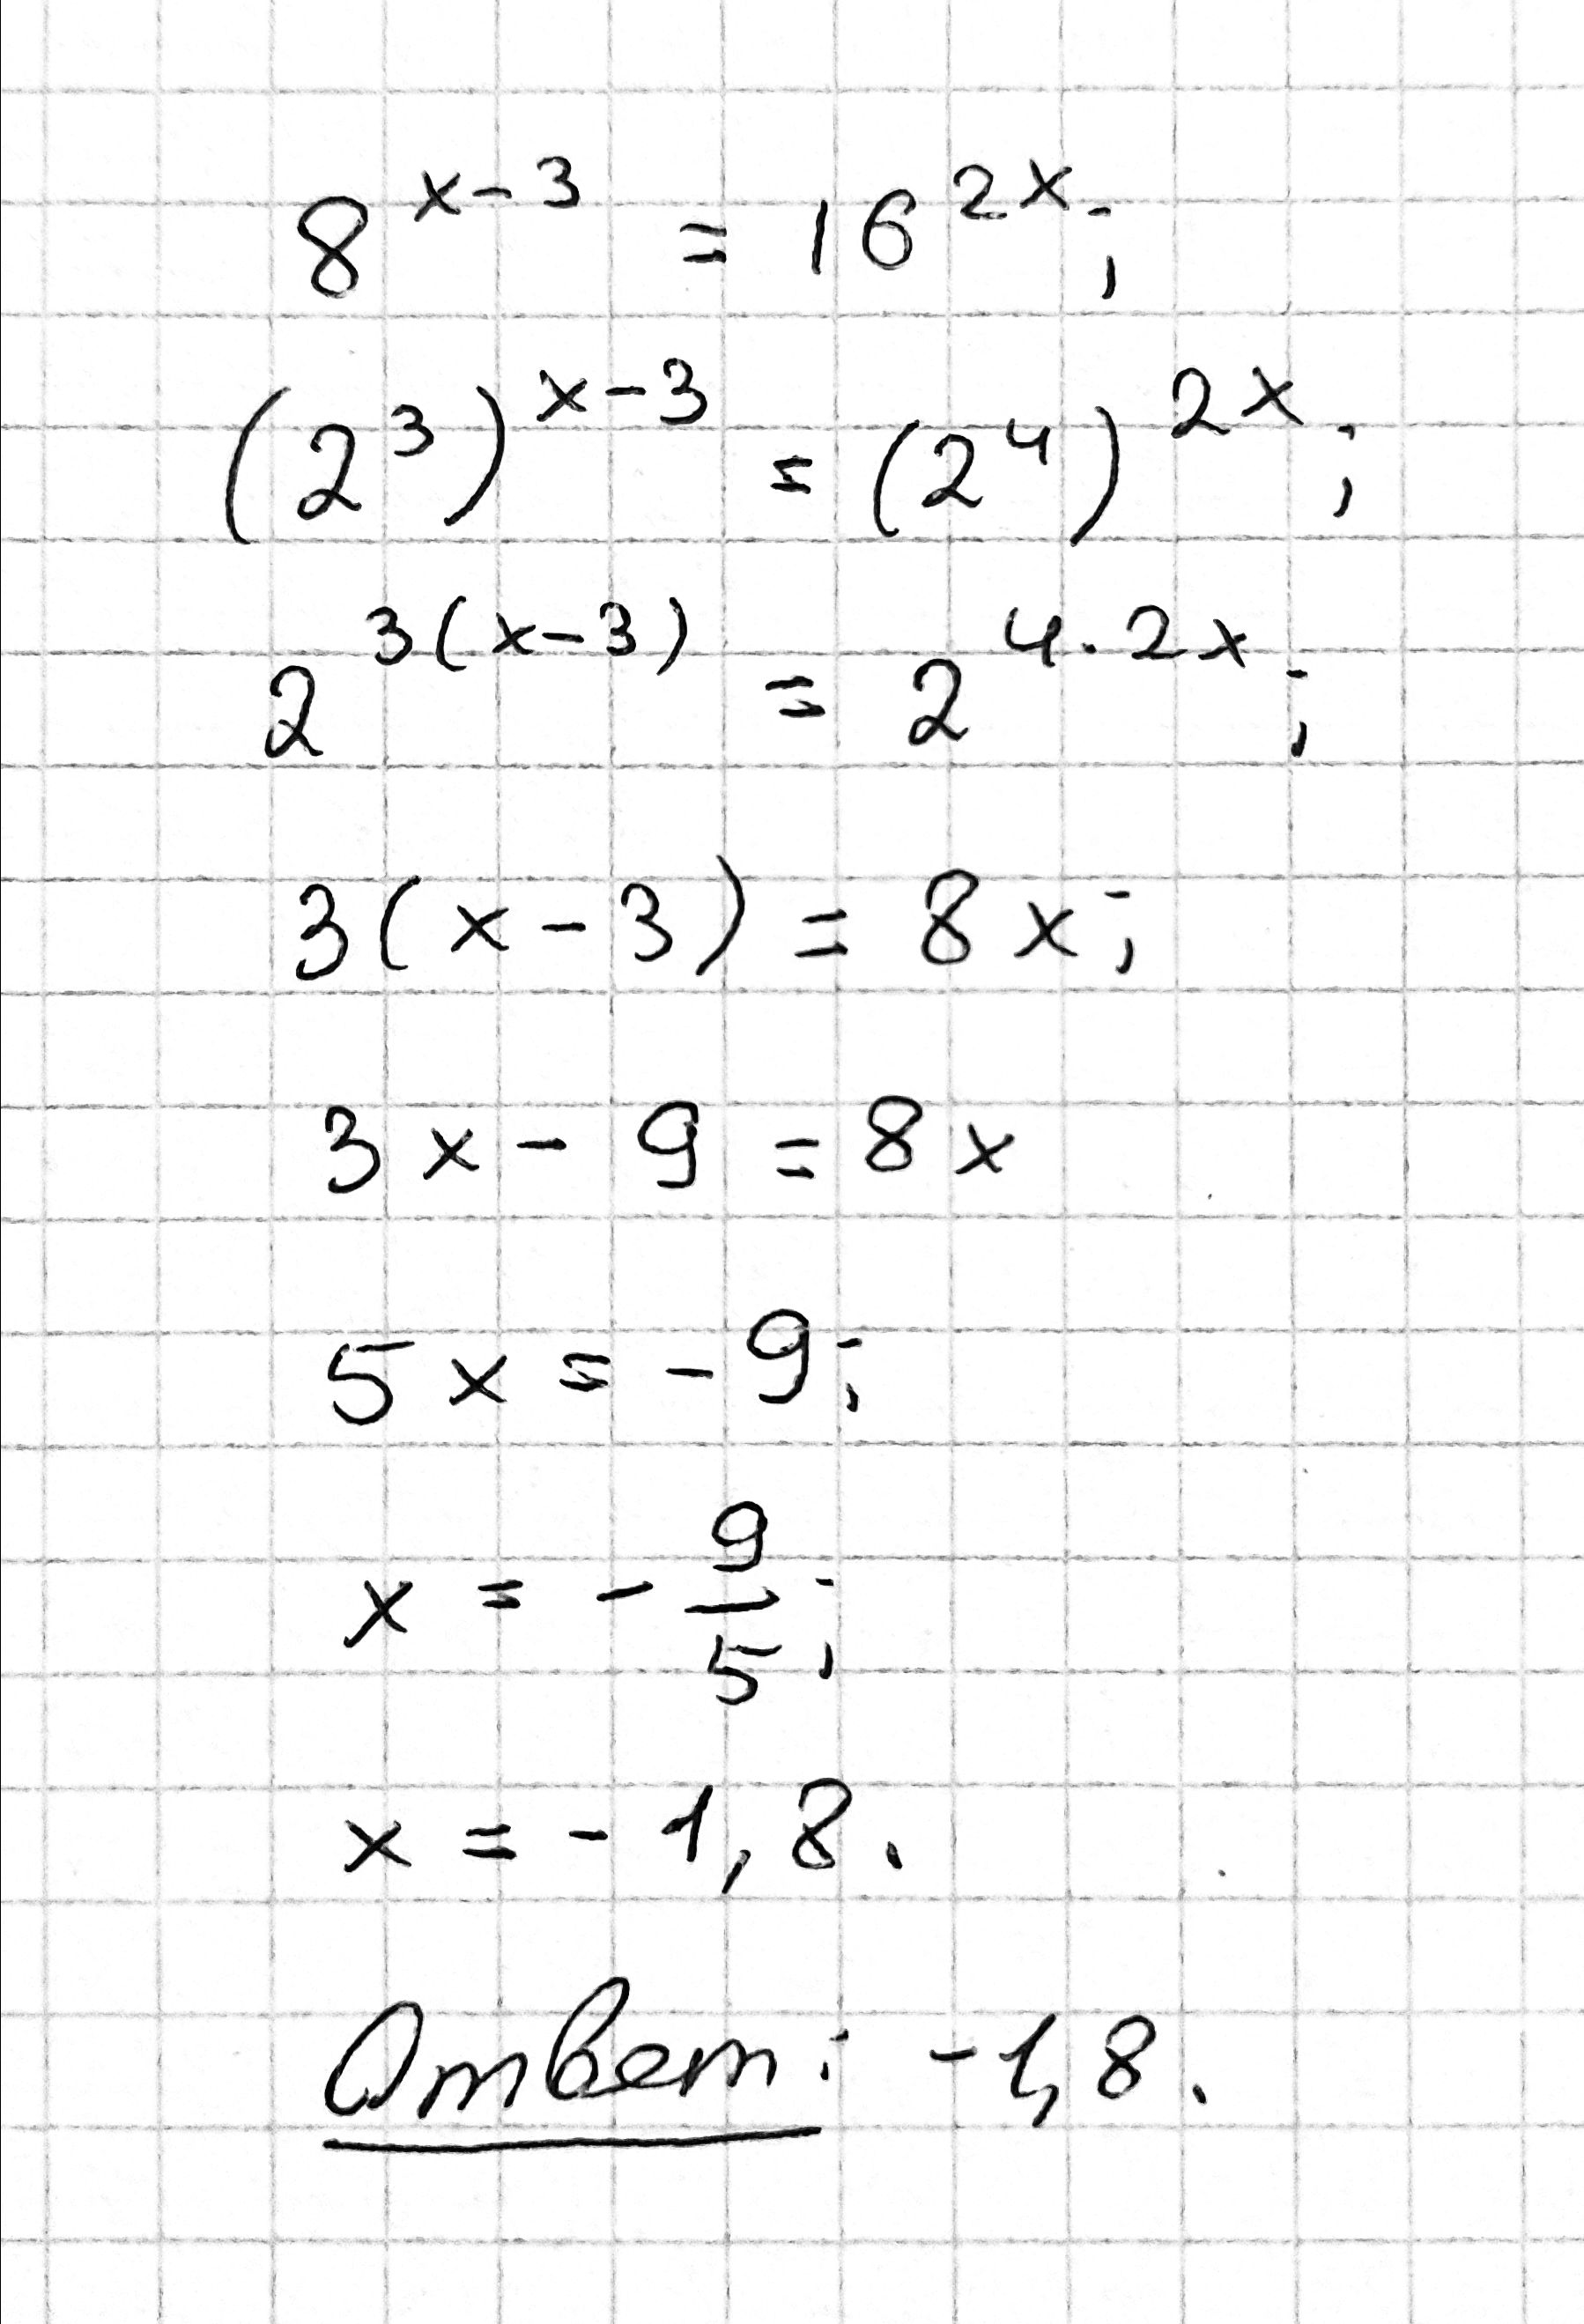 8^{x-3} = 16^{2x};
(2^3)^{x-3} = (2^4)^{2x};
2^{3(x-3)} = 2^{4·2x};
3(x-3) = 8x;
3x - 9 = 8x
5x = -9;
x = -\frac{9}{5};
x = -1,8.
Ответ: -1,8.